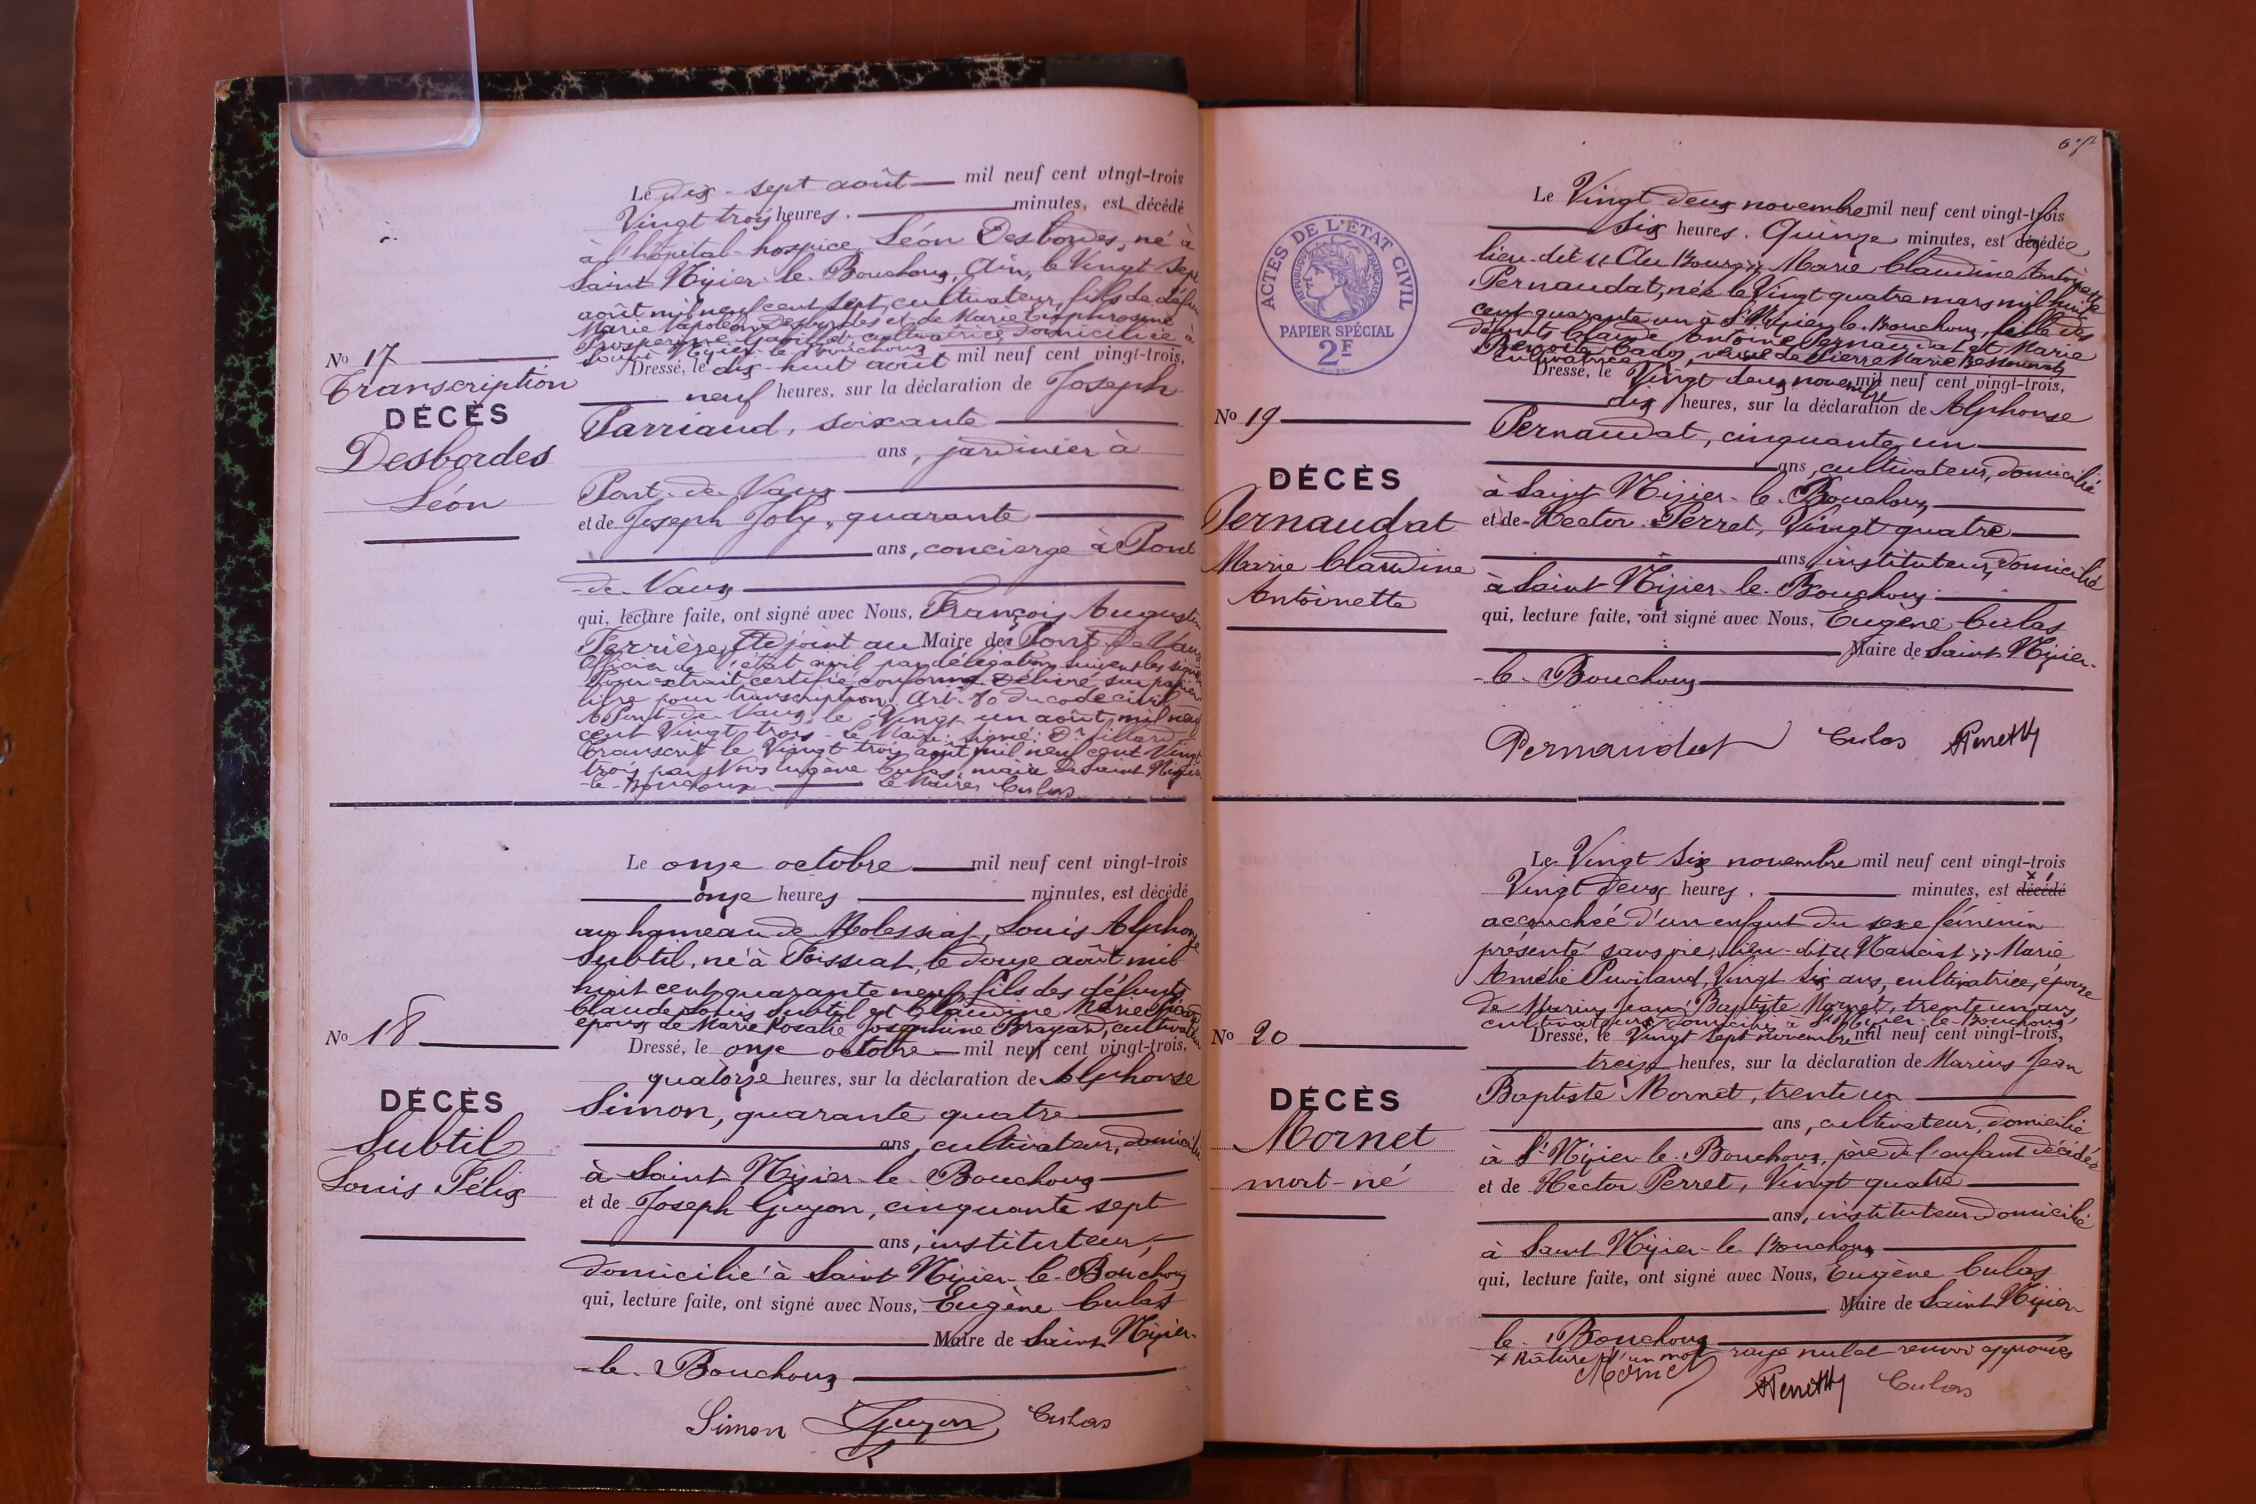 Le dix-sept août mil neuf cent vingt-trois
Vingt trois heures. minutes, est décédé
à l'hôpital-hospice, Léon Desbordes, né à
Saint Nizier-le-Bouchoux, Ain, le Vingt sept
août mil neuf cent sept, cultivateur, fils de défunt
Marie Napoléon Desbordes et de Marie
cultivatrice domiciliée à
Saint Nizier-le-Bouchoux
No 17
Transcription
DÉCÈS
Desbordes
Léon
Dressé, le dix-huit août mil neuf cent vingt-trois,
neuf heures, sur la déclaration de Joseph
Parriaud, soixante
ans, jardinier à
Pont-de-Vaux
et de Joseph Joly, quarante
ans, concierge à Pont
-de-Vaux
qui, lecture faite, ont signé avec Nous, François Augustin
Ferrière, Adjoint au Maire de Pont-de-Vaux
Officier de l'état civil par délégation suivent les signatures
Pour extrait certifié conforme délivré sur papier
libre pour transcription. Art. 80 du code civil
A Pont-de-Vaux, le Vingt un août mil neuf
cent Vingt trois. le Maire: signé: Dr
Transcrit le Vingt-trois août mil neuf cent Vingt
trois par Nous Eugène Culas, maire de Saint Nizier
-le-Bouchoux Le Maire, Culas
Le onze octobre mil neuf cent vingt-trois
onze heures minutes, est décédé
au hameau de Molessiat, Louis Alphonse
Subtil, né à Foissiat, le douze août mil
huit cent quarante neuf, fils des défunts
Claude Louis Subtil et Claudine Marie
époux de Marie Rosalie Josephine Brayard, cultivateur
No 18
DÉCÈS
Subtil
Louis Félix
Dressé, le onze octobre mil neuf cent vingt-trois,
quatorze heures, sur la déclaration de Alphonse
Simon, quarante quatre
ans, cultivateur, domicilié
à Saint Nizier-le-Bouchoux
et de Joseph Guyon, cinquante sept
ans, instituteur,
domicilié à Saint Nizier-le-Bouchoux
qui, lecture faite, ont signé avec Nous, Eugène Culas
Maire de Saint Nizier-
-le-Bouchoux
Simon Guyon Culas
ACTES DE L'ÉTAT CIVIL
RÉPUBLIQUE FRANÇAISE
PAPIER SPÉCIAL
2F
Le Vingt deux novembre mil neuf cent vingt-trois
Six heures. Quinze minutes, est décédée
lieu-dit "Au Bourg" Marie Claudine Antoinette
Pernaudat, née le Vingt quatre mars mil huit
cent quarante un à St Nizier-le-Bouchoux, fille des
défunts Claude Antoine Pernaudat et Marie
veuve de Pierre Marie
cultivatrice
No 19
DÉCÈS
Pernaudat
Marie Claudine
Antoinette
Dressé, le Vingt deux novembre mil neuf cent vingt-trois,
dix heures, sur la déclaration de Alphonse
Pernaudat, cinquante un
ans, cultivateur, domicilié
à Saint Nizier-le-Bouchoux
et de Hector Perret, Vingt quatre
ans, instituteur, domicilié
à Saint Nizier-le-Bouchoux
qui, lecture faite, ont signé avec Nous, Eugène Culas
Maire de Saint Nizier-
-le-Bouchoux
Pernaudat Culas Perret
Le Vingt six novembre mil neuf cent vingt-trois
Vingt deux heures. minutes, est décédé
accouchée d'un enfant du sexe féminin
présenté sans vie, lieu-dit Marie
Amélie Puvilland, Vingt six ans, cultivatrice, épouse
de Marius Jean Baptiste Mornet, trente un ans,
cultivateur, domiciliés à St Nizier-le-Bouchoux
No 20
DÉCÈS
Mornet
mort-né
Dressé, le Vingt sept novembre mil neuf cent vingt-trois,
treize heures, sur la déclaration de Marius Jean
Baptiste Mornet, trente un
ans, cultivateur, domicilié
à St Nizier-le-Bouchoux, père de l'enfant décédée
et de Hector Perret, Vingt quatre
ans, instituteur domicilié
à Saint Nizier-le-Bouchoux
qui, lecture faite, ont signé avec Nous, Eugène Culas
Maire de Saint Nizier-
le-Bouchoux
x Rature d'un mot rayé nul et renvoi approuvés
Mornet Perret Culas